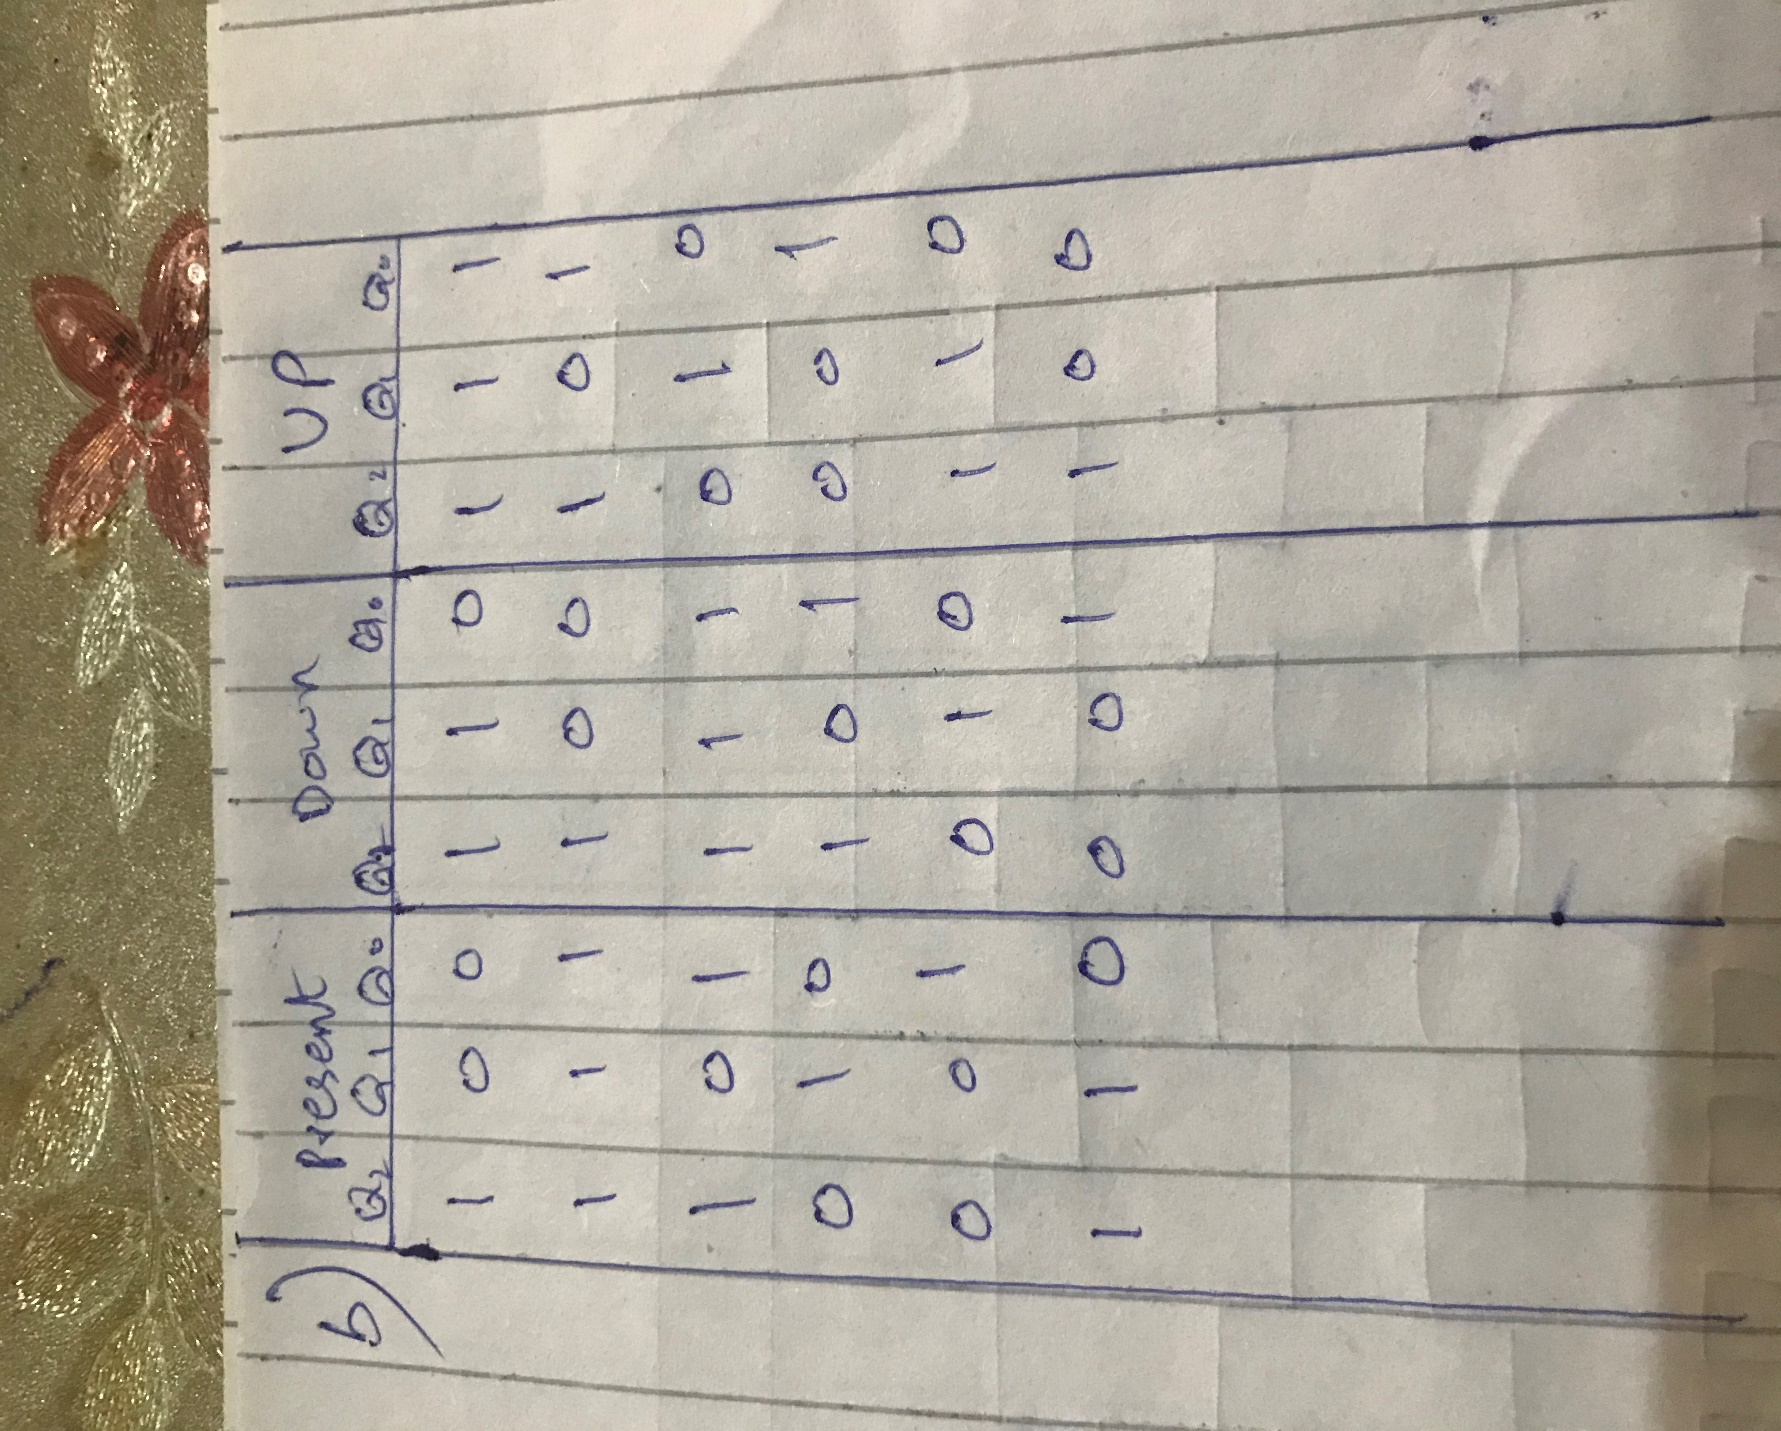 b) Present Down UP
Q₂ Q₁ Q₀ Q₂ Q₁ Q₀ Q₂ Q₁ Q₀
1 0 0 1 1 0 1 1 1
1 1 1 1 0 0 1 0 1
1 0 1 1 1 1 0 1 0
0 1 0 1 0 1 0 0 1
0 0 1 0 1 0 1 1 0
1 1 0 0 0 1 1 0 0